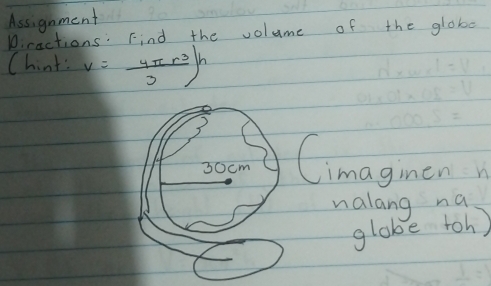 Assignment
Diractions: Find the volume of the globe
(hint: v = 4πr³/3)h
30cm
(imaginen n
nalang na
globe toh)